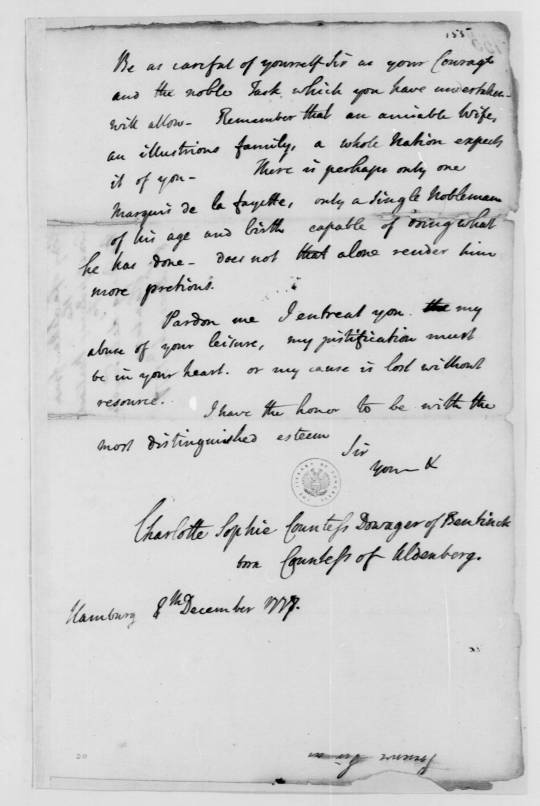 Be as careful of yourself Sir as your Courage
and the noble Task which you have undertaken
will allow - Remember that an amiable Wife,
an illustrious family, a whole Nation expects
it of you - There is perhaps only one
Marquis de la fayette, only a single Nobleman
of his age and birth capable of doing what
he has done - does not that alone render him
more pretious.
Pardon me I entreat you the my
abuse of your leisure, my justification must
be in your heart. or my cause is lost without
resource.
I have the honor to be with the
most distinguished esteem
Sir
your &
Charlotte Sophie Countess Dowager of Bentinck
born Countess of Aldenberg.
Hamburg 8th December
THE LIBRARY OF CONGRESS